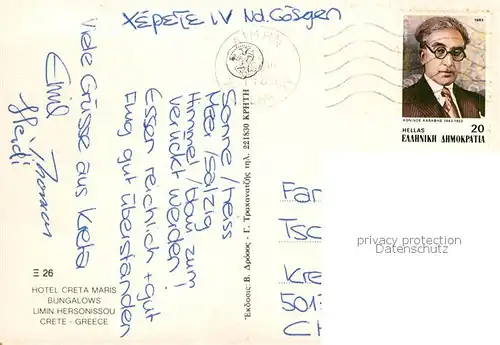 ΧΕΡΕΤΕ IV Nd. Gösgen
Sonne/heiss
Meer/Salzig
Himmel/blau zum
verückt werden!
Essen reichlich + gut
Flug gut überstanden
Viele Grüsse aus Kreta
Emil
Heidi
Thomas
Ξ 26
HOTEL CRETA MARIS
BUNGALOWS
LIMIN HERSONISSOU
CRETE - GREECE
Ἔκδοσις Β. Δρόσος - Γ. Τραχανατζῆς τηλ. 221830 ΚΡΗΤΗ
1983
ΚΩΝ/ΝΟΣ ΚΑΒΑΦΗΣ 1863-1933
HELLAS 20
ΕΛΛΗΝΙΚΗ ΔΗΜΟΚΡΑΤΙΑ
Fam
Tsc
Kre
501
CH
privacy protection
Datenschutz